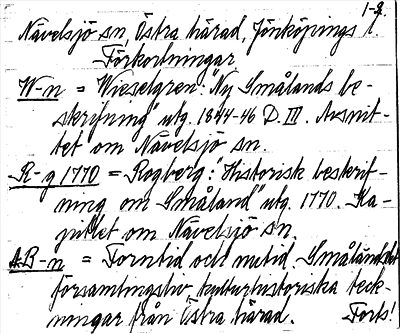 1-2.
Nävelsjö sn, Östra härad, Jönköpings l.
Förkortningar
W-n = Wieselgren: "Ny Smålands be-
skrifning" utg. 1844-46 D. III. Avsnit-
tet om Nävelsjö sn.
R-g 1770 = Rogberg: "Historisk beskrif-
ning om Småland" utg. 1770. Ka-
pitlet om Nävelsjö sn.
AB-n = Forntid och nutid. Småländskt
församlingsliv kulturhistoriska teck-
ningar från Östra härad. Forts!